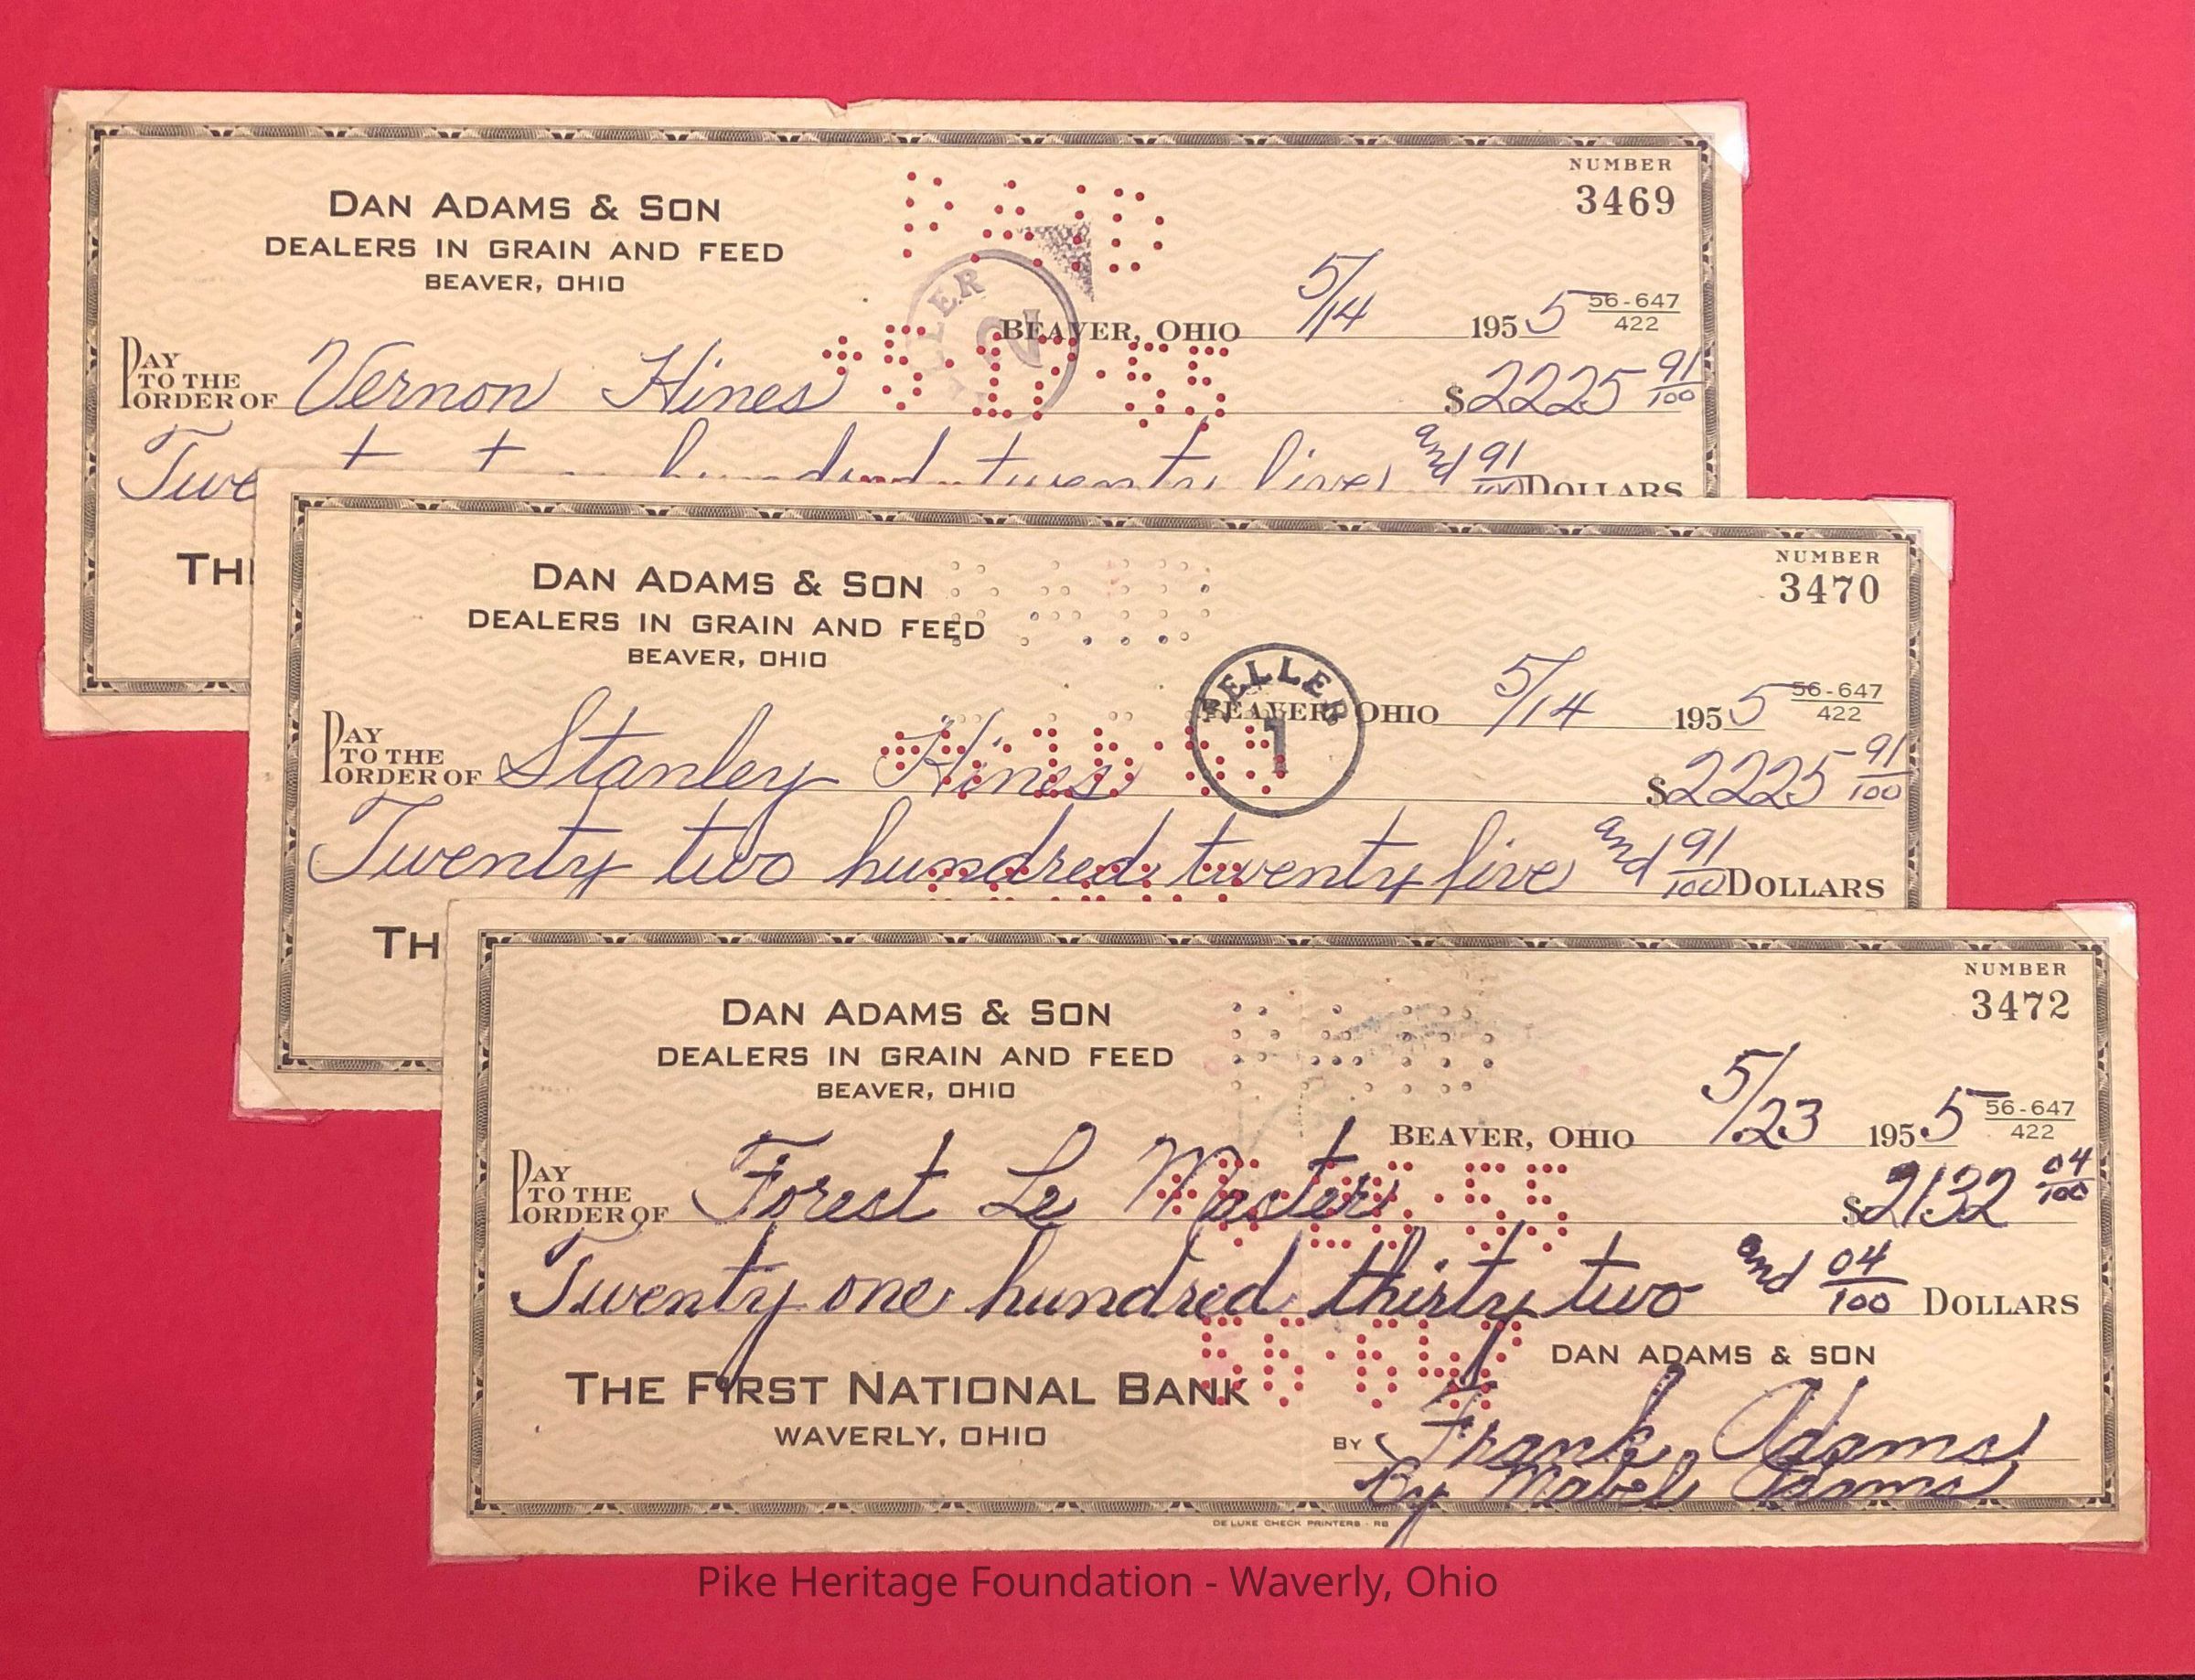 NUMBER
3469
DAN ADAMS & SON
DEALERS IN GRAIN AND FEED
BEAVER, OHIO
BEAVER, OHIO 5/14 1955 56-647
422
PAY
TO THE
ORDER OF Vernon Hines $2225 91/100
hundred twenty five and 91/100 DOLLARS
NUMBER
3470
DAN ADAMS & SON
DEALERS IN GRAIN AND FEED
BEAVER, OHIO
TELLER
1
BEAVER, OHIO 5/14 1955 56-647
422
PAY
TO THE
ORDER OF Stanley Hines $2225 91/100
Twenty two hundred twenty five and 91/100 DOLLARS
NUMBER
3472
DAN ADAMS & SON
DEALERS IN GRAIN AND FEED
BEAVER, OHIO
BEAVER, OHIO 5/23 1955 56-647
422
PAY
TO THE
ORDER OF Forest Le Master $2132 04/100
Twenty one hundred thirty two and 04/100 DOLLARS
DAN ADAMS & SON
THE FIRST NATIONAL BANK
WAVERLY, OHIO
BY Frank Adams
By Mabel Adams
DE LUXE CHECK PRINTERS - RB
Pike Heritage Foundation - Waverly, Ohio